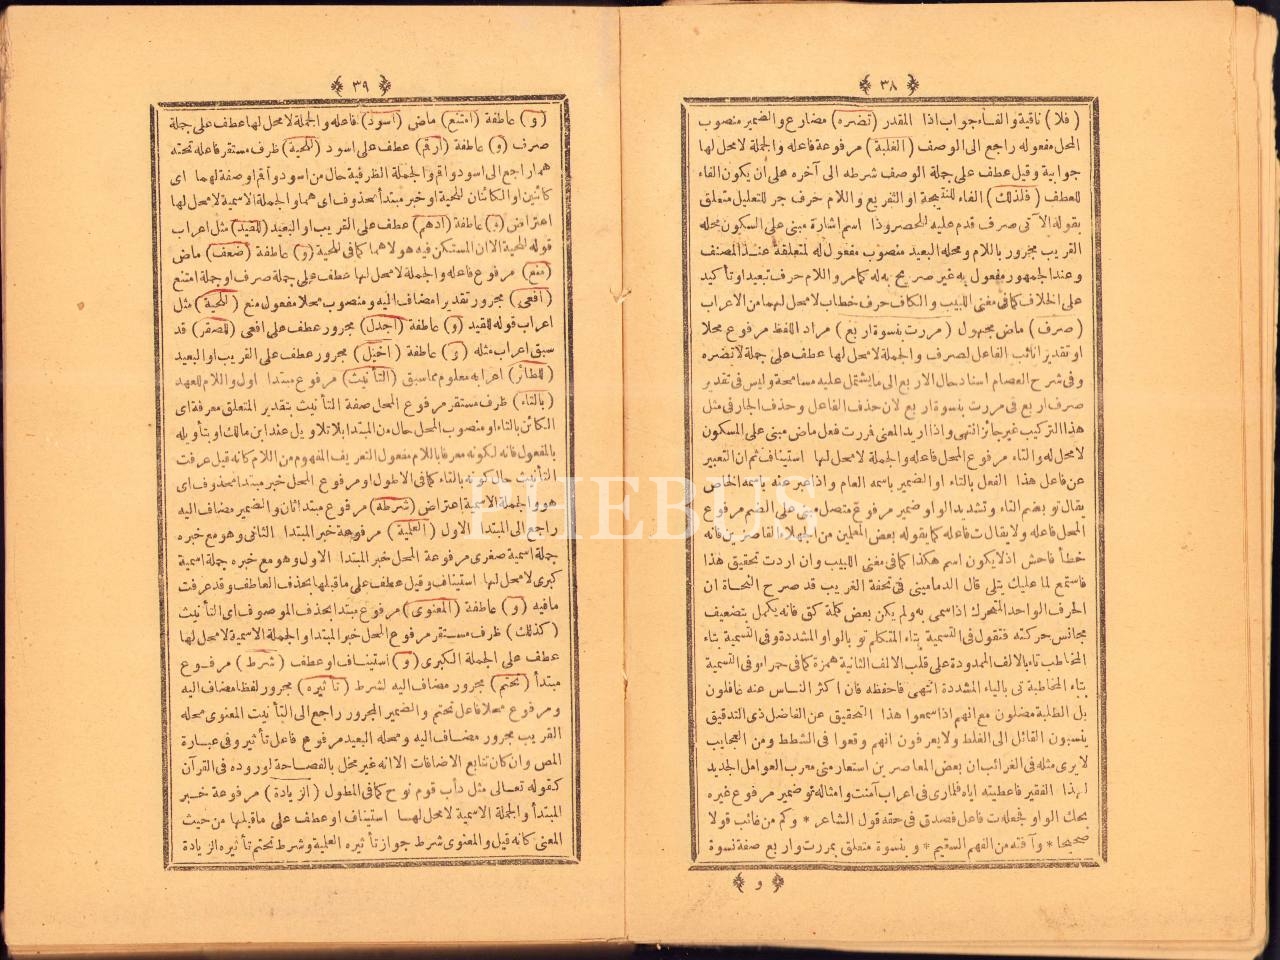 ﴿ ٣٨ ﴾
( فلا ) نافية والفاء جواب اذا المقدر ( تضره ) مضارع والضمير منصوب
المحل مفعوله راجع الى الوصف ( الغلبة ) مرفوعة فاعله والجملة لامحل لها
جوابية وقيل عطف على جملة الوصف شرطه الى آخره على أن يكون الفاء
للعطف ( فلذلك ) الفاء للنتيجة او التفريع واللام حرف جر للتعليل متعلق
بقوله الآتى صرف قدم عليه للحصر وذا اسم اشارة مبنى على السكون محله
القريب مجرور باللام ومحله البعيد منصوب مفعول له لمتعلقة عند المصنف
وعند الجمهور مفعول به غير صريح به له كمامر واللام حرف تبعيد او تأكيد
على الخلاف كما فى مغنى اللبيب والكاف حرف خطاب لامحل لهما من الاعراب
( صرف ) ماض مجهول ( مررت بنسوة اربع ) مراد اللفظ مرفوع محلا
او تقديرا نائب الفاعل لصرف والجملة لامحل لها عطف على جملة لاتضره
وفى شرح العصام اسناد حال الاربع الى مايشتمل عليه مسامحة وليس فى تقدير
صرف اربع فى مررت بنسوة اربع لان حذف الفاعل وحذف الجار فى مثل
هذا التركيب غير جائز انتهى واذا اريد المعنى فررت فعل ماض مبنى على السكون
لامحل له والتاء مرفوع المحل فاعله والجملة لامحل لها استيناف ثم ان التعبير
عن فاعل هذا الفعل بالتاء او الضمير باسمه العام واذا عبر عنه باسمه الخاص
يقال تو بضم التاء وتشديد الواو ضمير مرفوع متصل مبنى على الضم مرفوع
المحل فاعله ولا يقال ت فاعله كما يقوله بعض المعلمين من الجهلاء القاصرين فانه
خطأ فاحش اذلا يكون اسم هكذا كما فى مغنى اللبيب وان اردت تحقيق هذا
فاستمع لما عليك يتلى قال الدمامينى فى تحفة الغريب قد صرح النحاة ان
الحرف الواحد المتحرك اذا سمى به ولم يكن بعض كلمة كتى فانه يكمل بتضعيف
مجانس حركته فتقول فى التسمية بتاء المتكلم تو بالواو المشددة وفى التسمية بتاء
المخاطب تاء بالالف الممدودة على قلب الالف الثانية همزة كما فى حمراء وفى التسمية
بتاء المخاطبة تى بالياء المشددة انتهى فاحفظه فان اكثر الناس عنه غافلون
بل الطلبة مضلون مع انهم اذا سمعوا هذا التحقيق عن الفاضل ذى التدقيق
ينسبون القائل الى الغلط ولايعرفون انهم وقعوا فى الشطط ومن العجايب
لايرى مثله فى الغرائب ان بعض المعاصرين استعار منى معرب العوامل الجديد
لهذا الفقير فاعطيته اياه فلما رى فى اعراب آمنت وامثاله تو ضمير مرفوع غيره
بحك الواو فجعله ت فاعل فصدق فى حقه قول الشاعر * وكم من غائب قولا
صحيحا * وآفته من الفهم السقيم * وبنسوة متعلق بمررت واربع صفة نسوة
﴿ و ﴾
﴿ ٣٩ ﴾
( و ) عاطفة ( امتنع ) ماض ( اسود ) فاعله والجملة لامحل لها عطف على جملة
صرف ( و ) عاطفة ( ارقم ) عطف على اسود ( للحية ) ظرف مستقر فاعله تحته
هما راجع الى اسود وارقم والجملة الظرفية حال من اسود وارقم اوصفة لهما اى
كائنين او الكائنان للحية او خبر مبتدأ محذوف اى هما والجملة الاسمية لامحل لها
اعتراض ( و ) عاطفة ( ادهم ) عطف على القريب او البعيد ( للقيد ) مثل اعراب
قوله للحية الاان المستكن فيه هو لا هما كما فى للحية ( و ) عاطفة ( ضعف ) ماض
( منع ) مرفوع فاعله والجملة لامحل لها عطف على جملة صرف او جملة امتنع
( افعى ) مجرور تقديرا مضاف اليه ومنصوب محلا مفعول منع ( للحية ) مثل
اعراب قوله للقيد ( و ) عاطفة ( اجدل ) مجرور عطف على افعى ( للصقر ) قد
سبق اعراب مثله ( و ) عاطفة ( اخيل ) مجرور عطف على القريب او البعيد
( للطائر ) اعرابه معلوم مماسبق ( التأنيث ) مرفوع مبتدا اول واللام للعهد
( بالتاء ) ظرف مستقر مرفوع المحل صفة التأنيث بتقدير المتعلق معرفة اى
الكائن بالتاء او منصوب المحل حال من المبتدا بلا تلاويل عند ابن مالك او بتأويله
بالمفعول فانه لكونه معرفا باللام مفعول التعريف المفهوم من اللام كانه قيل عرفت
التأنيث حال كونه بالتاء كما فى الاطول او مرفوع المحل خبر مبتدا محذوف اى
هو والجملة الاسمية اعتراض ( شرطه ) مرفوع مبتدا ثان والضمير مضاف اليه
راجع الى المبتدا الاول ( العلية ) مرفوعة خبر المبتدا الثانى وهو مع خبره
جملة اسمية صغرى مرفوعة المحل خبر المبتدا الاول وهو مع خبره جملة اسمية
كبرى لامحل لها استيناف وقيل عطف على ماقبلها بحذف العاطف وقد عرفت
مافيه ( و ) عاطفة ( المعنوى ) مرفوع مبتدا بحذف الموصوف اى التأنيث
( كذلك ) ظرف مستقر مرفوع المحل خبر المبتدا والجملة الاسمية لامحل لها
عطف على الجملة الكبرى ( و ) استيناف او عطف ( شرط ) مرفوع
مبتدأ ( تحتم ) مجرور مضاف اليه لشرط ( تاثيره ) مجرور لفظا مضاف اليه
ومرفوع محلا فاعل تحتم والضمير المجرور راجع الى التأنيث المعنوى محله
القريب مجرور مضاف اليه ومحله البعيد مرفوع فاعل تأثير وفى عبارة
المص وان كان تتابع الاضافات الاانه غير مخل بالفصاحة لوروده فى القرآن
كقوله تعالى مثل دأب قوم نوح كما فى المطول ( الزيادة ) مرفوعة خبر
المبتدأ والجملة الاسمية لامحل لها استيناف او عطف على ماقبلها من حيث
المعنى كانه قيل والمعنوى شرط جواز تأثيره العلية وشرط تحتم تأثيره الزيادة
PHEBUS